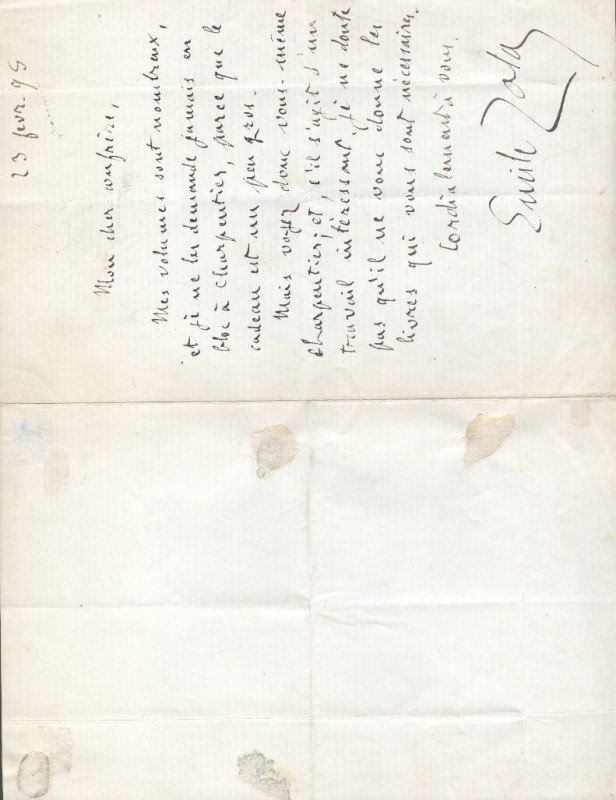 23 fevr. 95
Mon cher confrère,
Mes volumes sont nombreux,
et je ne les demande jamais en
bloc à Charpentier, parce que le
cadeau est un peu gros.
Mais voyez donc vous-même
Charpentier; et, s'il s'agit d'un
travail intéressant je ne doute
pas qu'il ne vous donne les
livres qui vous sont nécessaires.
Cordialement à vous.
Emile Zola